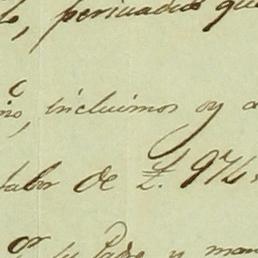 , persuadido que
, incluimos oy a
valor de £. 974
or su Padre y man